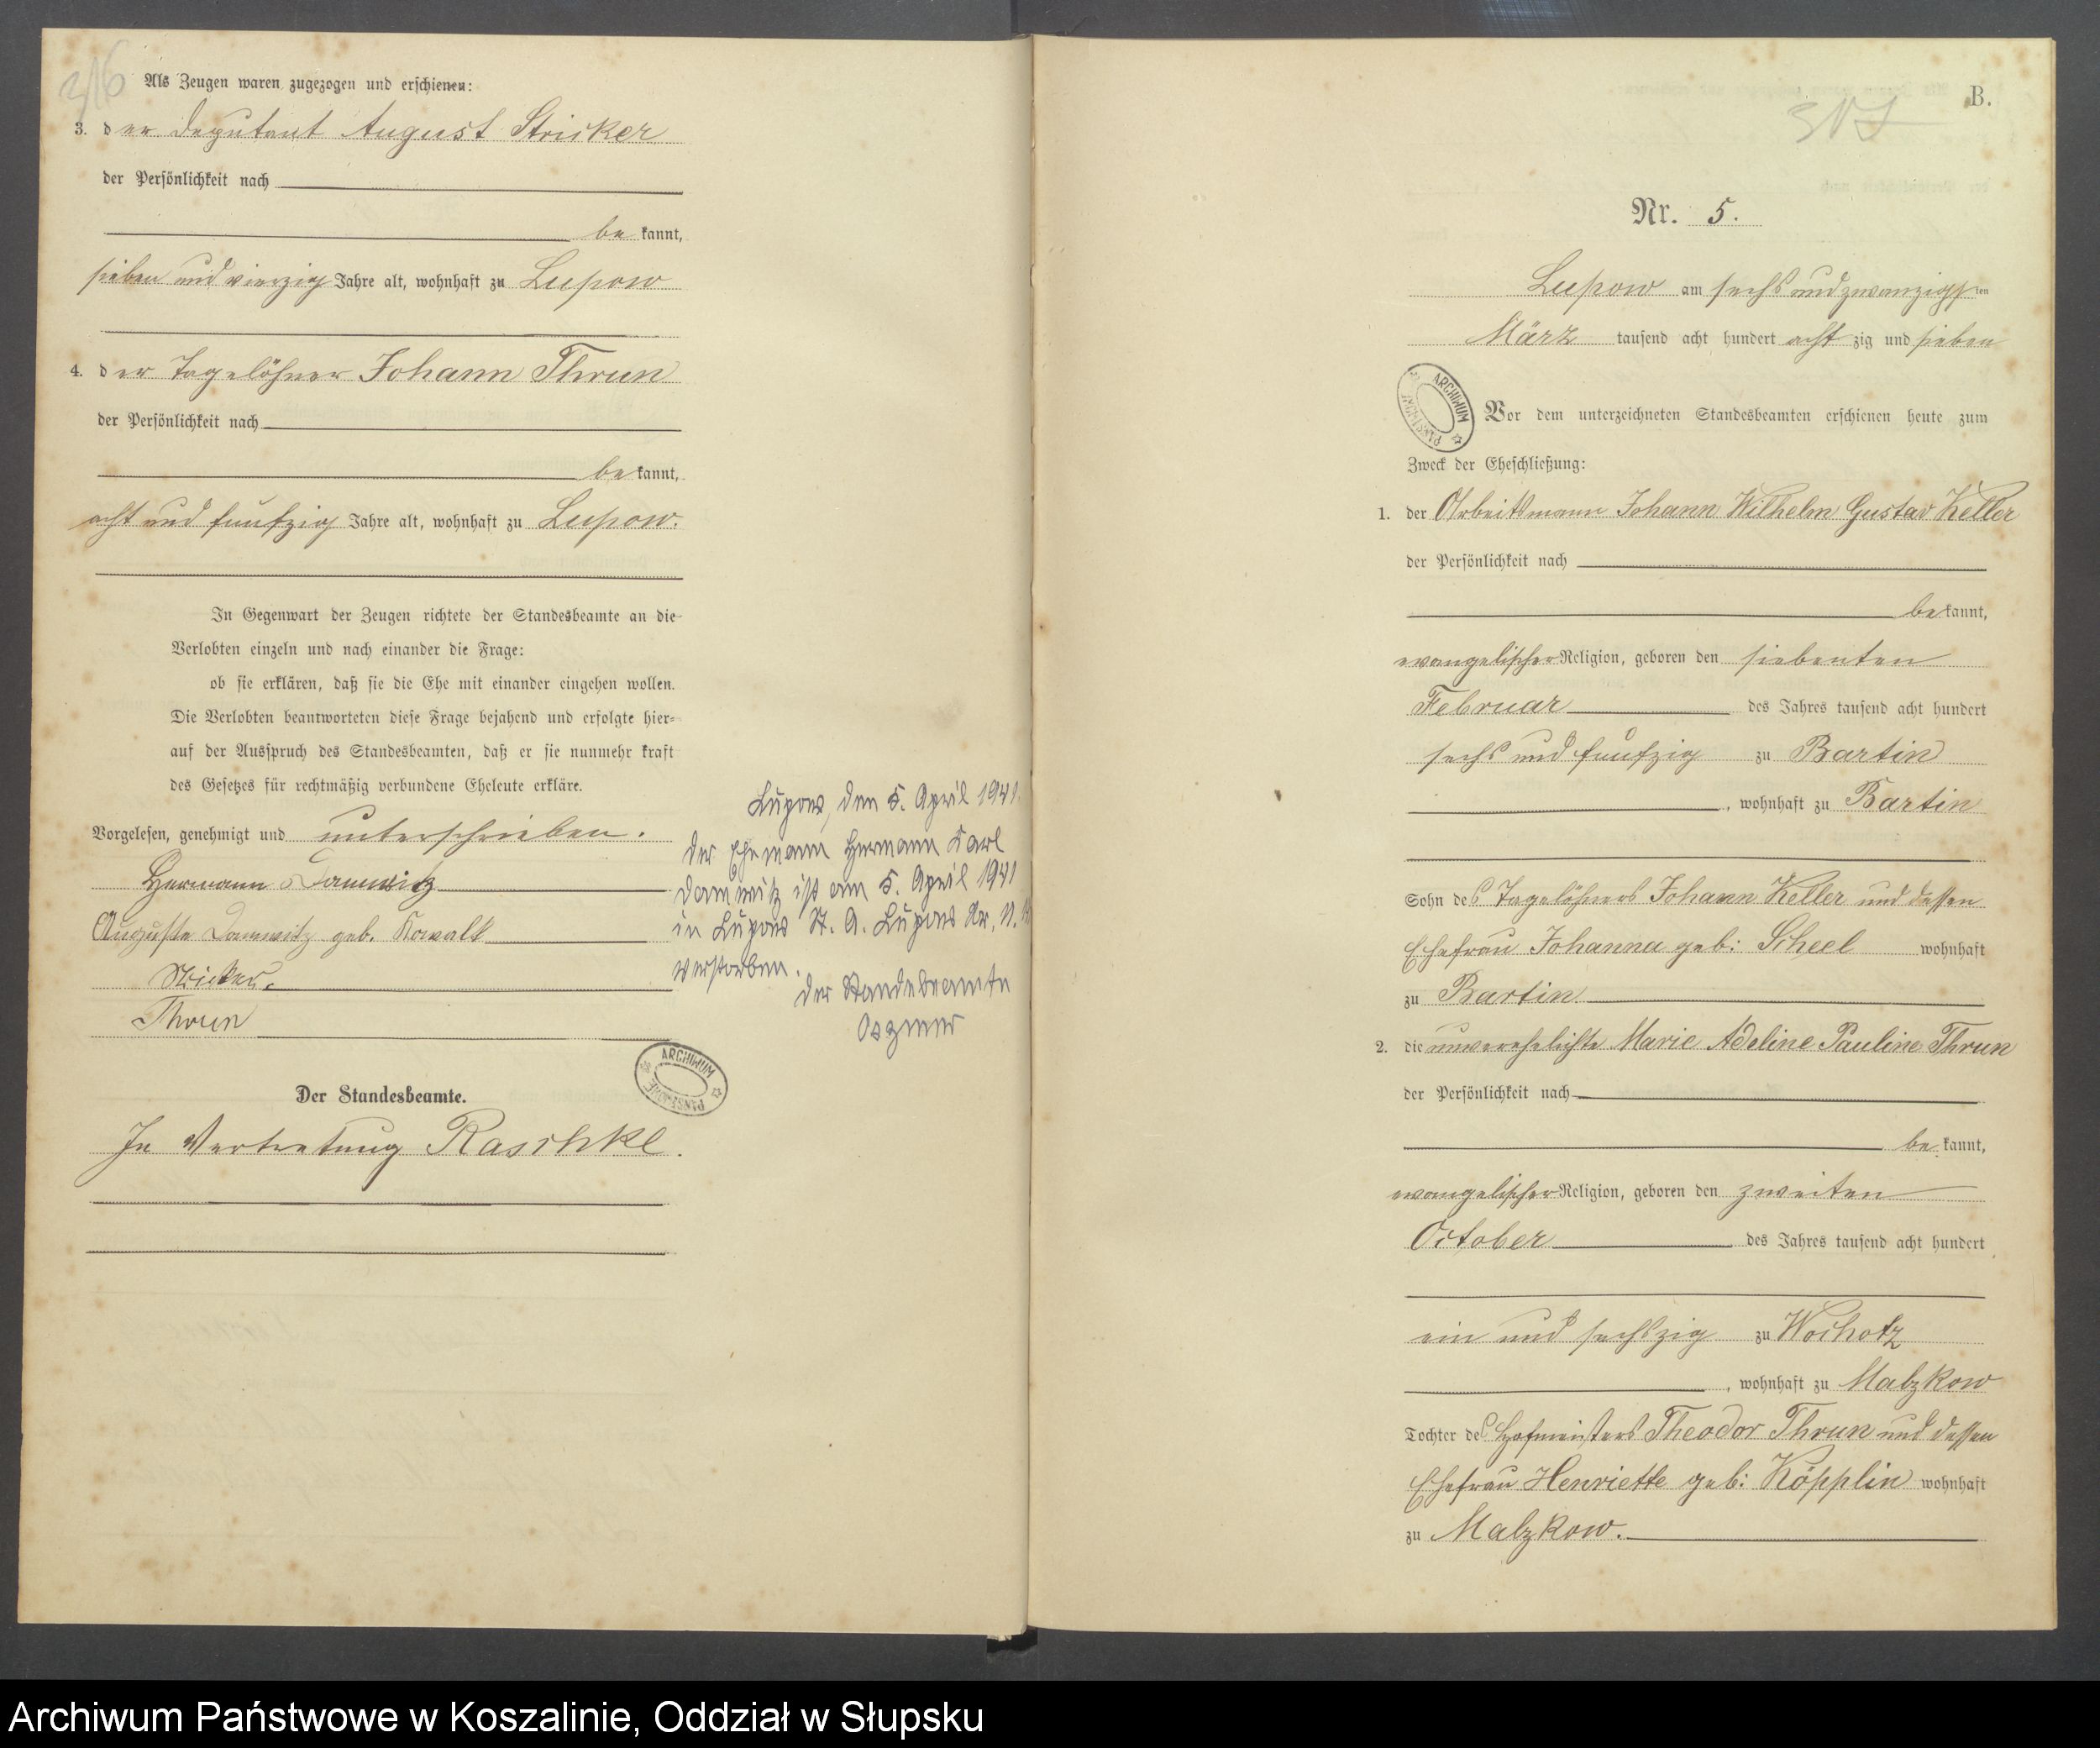 316
Als Zeugen waren zugezogen und erschienen:
3. der Deputant August Stricker
der Persönlichkeit nach
bekannt,
sieben und vierzig Jahre alt, wohnhaft zu Lupow
4. der Tagelöhner Johann Thrun
der Persönlichkeit nach
bekannt,
acht und funfzig Jahre alt, wohnhaft zu Lupow.
In Gegenwart der Zeugen richtete der Standesbeamte an die
Verlobten einzeln und nach einander die Frage:
ob sie erklären, daß sie die Ehe mit einander eingehen wollen.
Die Verlobten beantworteten diese Frage bejahend und erfolgte hier-
auf der Ausspruch des Standesbeamten, daß er sie nunmehr kraft
des Gesetzes für rechtmäßig verbundene Eheleute erkläre.
Vorgelesen, genehmigt und unterschrieben.
Hermann Damwitz
Auguste Damwitz geb. Kowalk
Stricker.
Thrun
Der Standesbeamte.
In Vertretung Raschke.
Lupow, den 5. April 1941.
Der Ehemann Hermann Karl
Damwitz ist am 5. April 1941
in Lupow St. A. Lupow Nr. 11.
verstorben.
Der Standesbeamte
ARCHIWUM PAŃSTWOWE
B.
317
Nr. 5.
Lupow am sechs und zwanzigsten
März tausend acht hundert achtzig und sieben
ARCHIWUM PAŃSTWOWE
Vor dem unterzeichneten Standesbeamten erschienen heute zum
Zweck der Eheschließung:
1. der Arbeitsmann Johann Wilhelm Gustav Keller
der Persönlichkeit nach
bekannt,
evangelischer Religion, geboren den siebenten
Februar des Jahres tausend acht hundert
sechs und funfzig zu Bartin
, wohnhaft zu Bartin
Sohn des Tagelöhners Johann Keller und dessen
Ehefrau Johanna geb: Scheel wohnhaft
zu Bartin
2. die unverehelichte Marie Adeline Pauline Thrun
der Persönlichkeit nach
bekannt,
evangelischer Religion, geboren den zweiten
October des Jahres tausend acht hundert
ein und sechszig zu Wochotz
, wohnhaft zu Malzkow
Tochter des Hofmeisters Theodor Thrun und dessen
Ehefrau Henriette geb: Köpplin wohnhaft
zu Malzkow.
Archiwum Państwowe w Koszalinie, Oddział w Słupsku